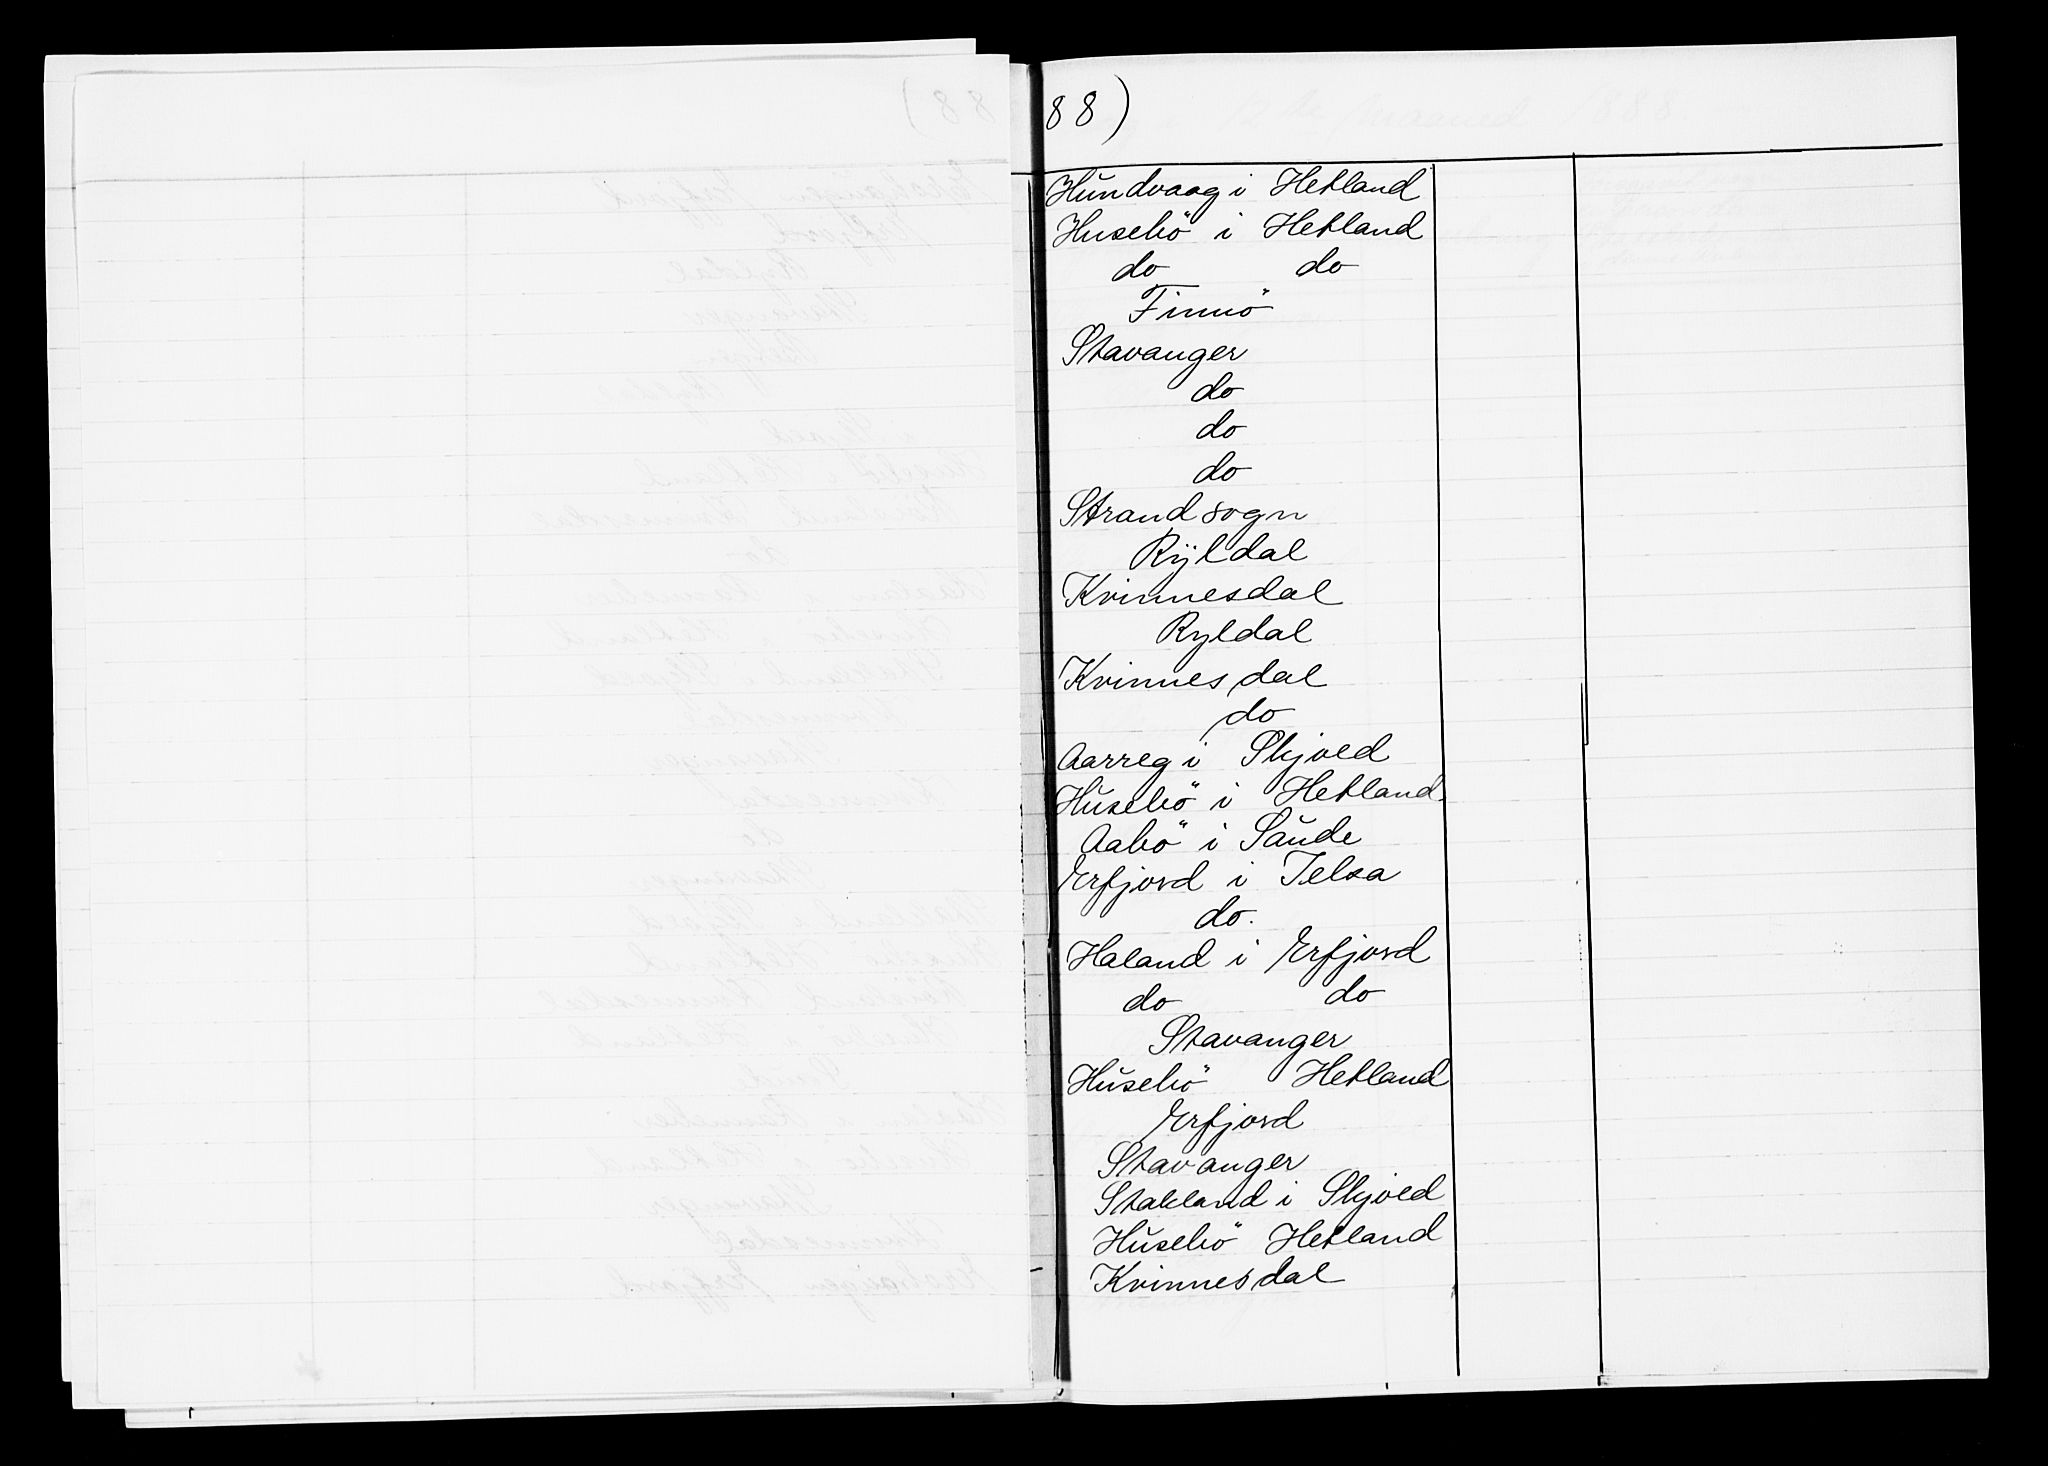 88)
Hundvaag i Hetland
Husebö i Hetland
do do
Finnö
Stavanger
do
do
do
Strandsogn
Ryldal
Kvinnesdal
Ryldal
Kvinnesdal
do
Aarreg i Skjold
Husebö i Hetland.
Aabö i Saude
Erfjord i Jelsa
do.
Haland i Erfjord
do do
Stavanger
Husebö Hetland
Erfjord
Stavanger
Stakland i Skjold
Husebö Hetland
Kvinnesdal